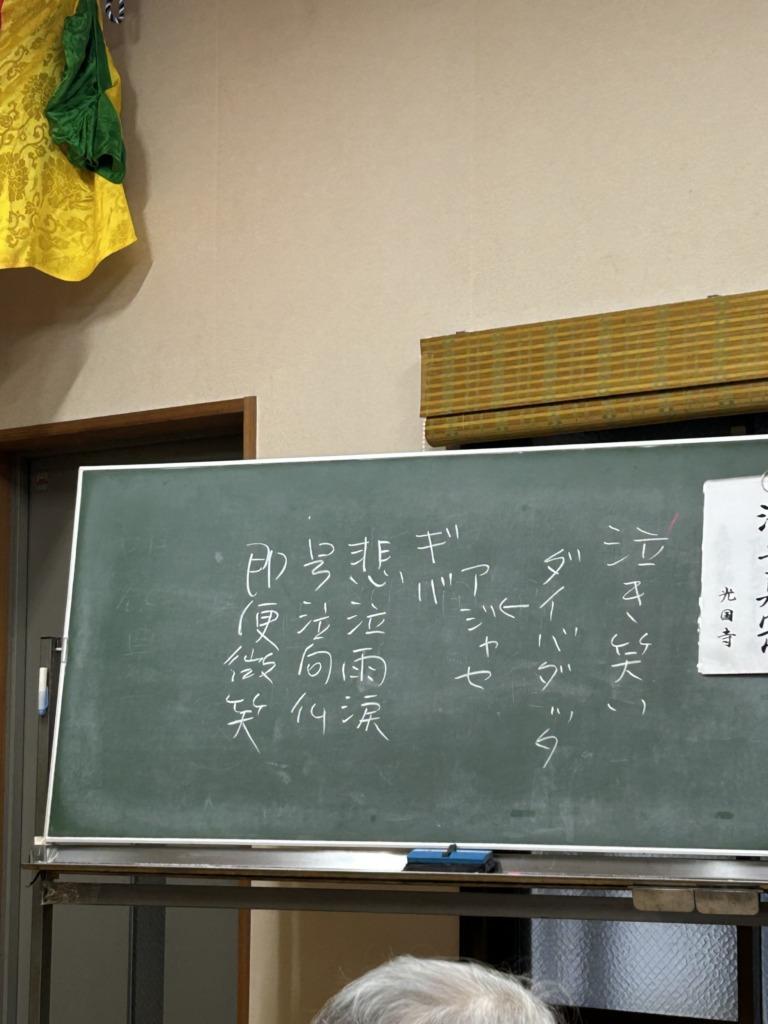 光国寺
泣き笑い
ダイバダッタ
←
アジャセ
ギバ
悲泣雨涙
号泣向仏
即便微笑